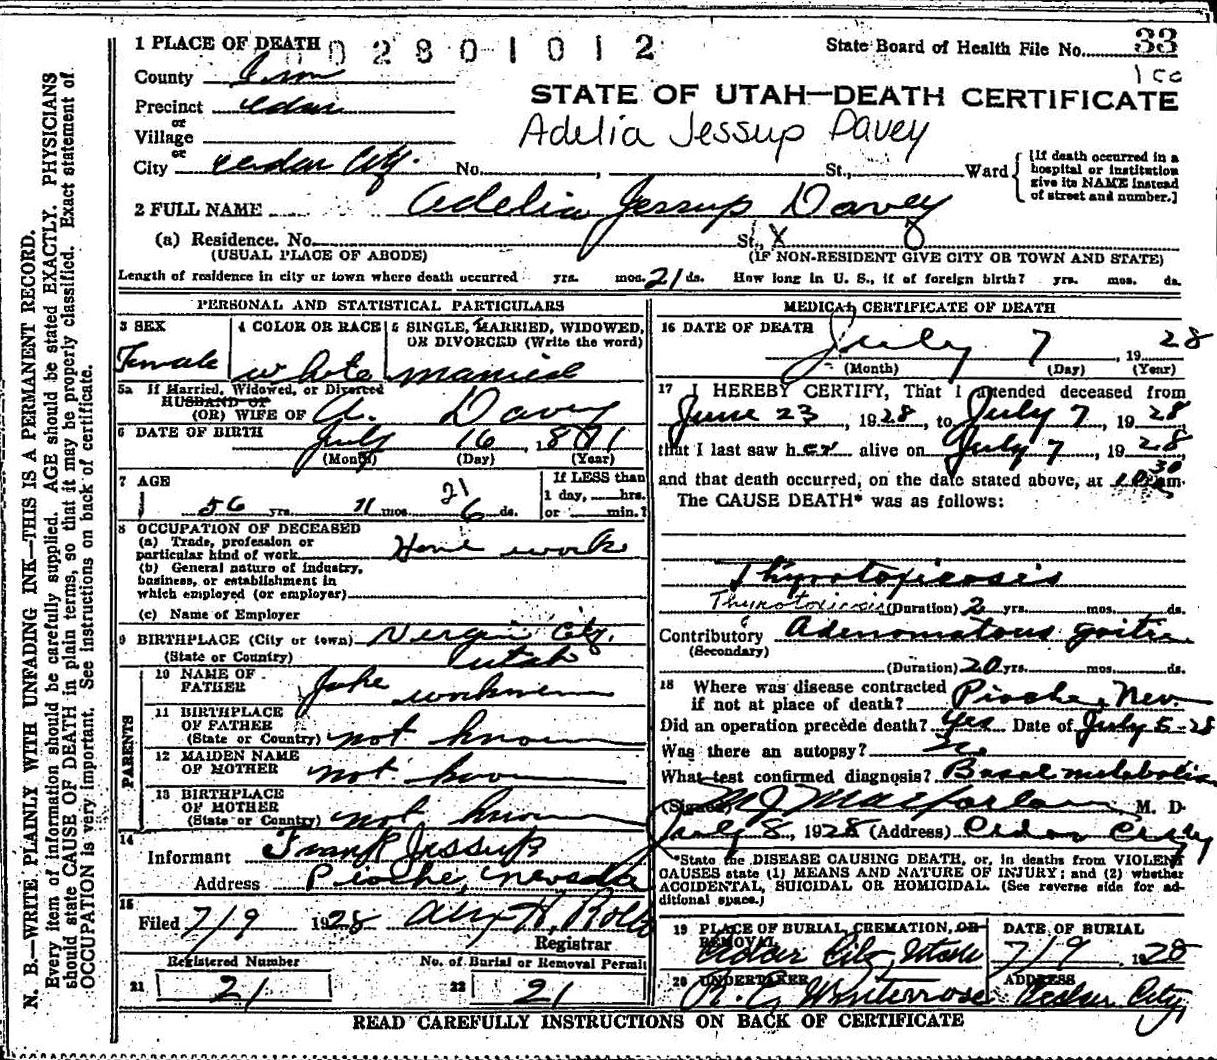 1 PLACE OF DEATH 0 0 2 8 0 1 0 1 2 State Board of Health File No. 33
County Iron 1 cc
Precinct Cedar STATE OF UTAH—DEATH CERTIFICATE
or
Village Adelia Jessup Davey
or
City Cedar City. No. , St., Ward {[If death occurred in a hospital or institution give its NAME instead of street and number.]
2 FULL NAME Adelia Jessup Davey
(a) Residence. No. St., X
(USUAL PLACE OF ABODE) (IF NON-RESIDENT GIVE CITY OR TOWN AND STATE)
Length of residence in city or town where death occurred yrs. mos. 21 ds. How long in U. S., if of foreign birth? yrs. mos. ds.
PERSONAL AND STATISTICAL PARTICULARS
3 SEX 4 COLOR OR RACE 5 SINGLE, MARRIED, WIDOWED,
OR DIVORCED (Write the word)
Female white married
5a If Married, Widowed, or Divorced
HUSBAND OF
(OR) WIFE OF A. Davey
6 DATE OF BIRTH July 16, 1871
(Month) (Day) (Year)
7 AGE If LESS than
56 yrs. 11 mos. 21 6 ds. 1 day, hrs.
or min.?
8 OCCUPATION OF DECEASED
(a) Trade, profession or
particular kind of work Home work
(b) General nature of industry,
business, or establishment in
which employed (or employer)
(c) Name of Employer
9 BIRTHPLACE (City or town) Vergin City.
(State or Country) Utah
PARENTS
10 NAME OF
FATHER Jake workmen
11 BIRTHPLACE
OF FATHER
(State or Country) not known
12 MAIDEN NAME
OF MOTHER not known
13 BIRTHPLACE
OF MOTHER
(State or Country) not known
14
Informant Frank Jessup
Address Pioche, nevada
15
Filed 7/9 1928 Alex H. Rollo
Registrar
Registered Number No. of Burial or Removal Permit
21 21 22 21
MEDICAL CERTIFICATE OF DEATH
16 DATE OF DEATH July 7, 1928
(Month) (Day) (Year)
17 I HEREBY CERTIFY, That I attended deceased from
June 23, 1928, to July 7, 1928
that I last saw her alive on July 7, 1928,
and that death occurred, on the date stated above, at 10 30 am.
The CAUSE DEATH* was as follows:
Thyrotoxicosis
Thyrotoxicosis (Duration) 2 yrs. mos. ds.
Contributory Adenomatous goitre
(Secondary)
(Duration) 20 yrs. mos. ds.
18 Where was disease contracted
if not at place of death? Pioche, Nev.
Did an operation precede death? Yes Date of July 5-28
Was there an autopsy? No
What test confirmed diagnosis? Basal metabolism
(Signed) M J Macfarlane M. D
July 8, 1928 (Address) Cedar City
*State the DISEASE CAUSING DEATH, or, in deaths from VIOLENT
CAUSES state (1) MEANS AND NATURE OF INJURY; and (2) whether
ACCIDENTAL, SUICIDAL OR HOMICIDAL. (See reverse side for ad-
ditional space.)
19 PLACE OF BURIAL, CREMATION, OR DATE OF BURIAL
REMOVAL
Cedar City, Utah 7/9 1928
20 UNDERTAKER ADDRESS
Cedar City
READ CAREFULLY INSTRUCTIONS ON BACK OF CERTIFICATE
N. B.—WRITE PLAINLY WITH UNFADING INK—THIS IS A PERMANENT RECORD.
Every item of information should be carefully supplied. AGE should be stated EXACTLY. PHYSICIANS
should state CAUSE OF DEATH in plain terms, so that it may be properly classified. Exact statement of
OCCUPATION is very important. See instructions on back of certificate.